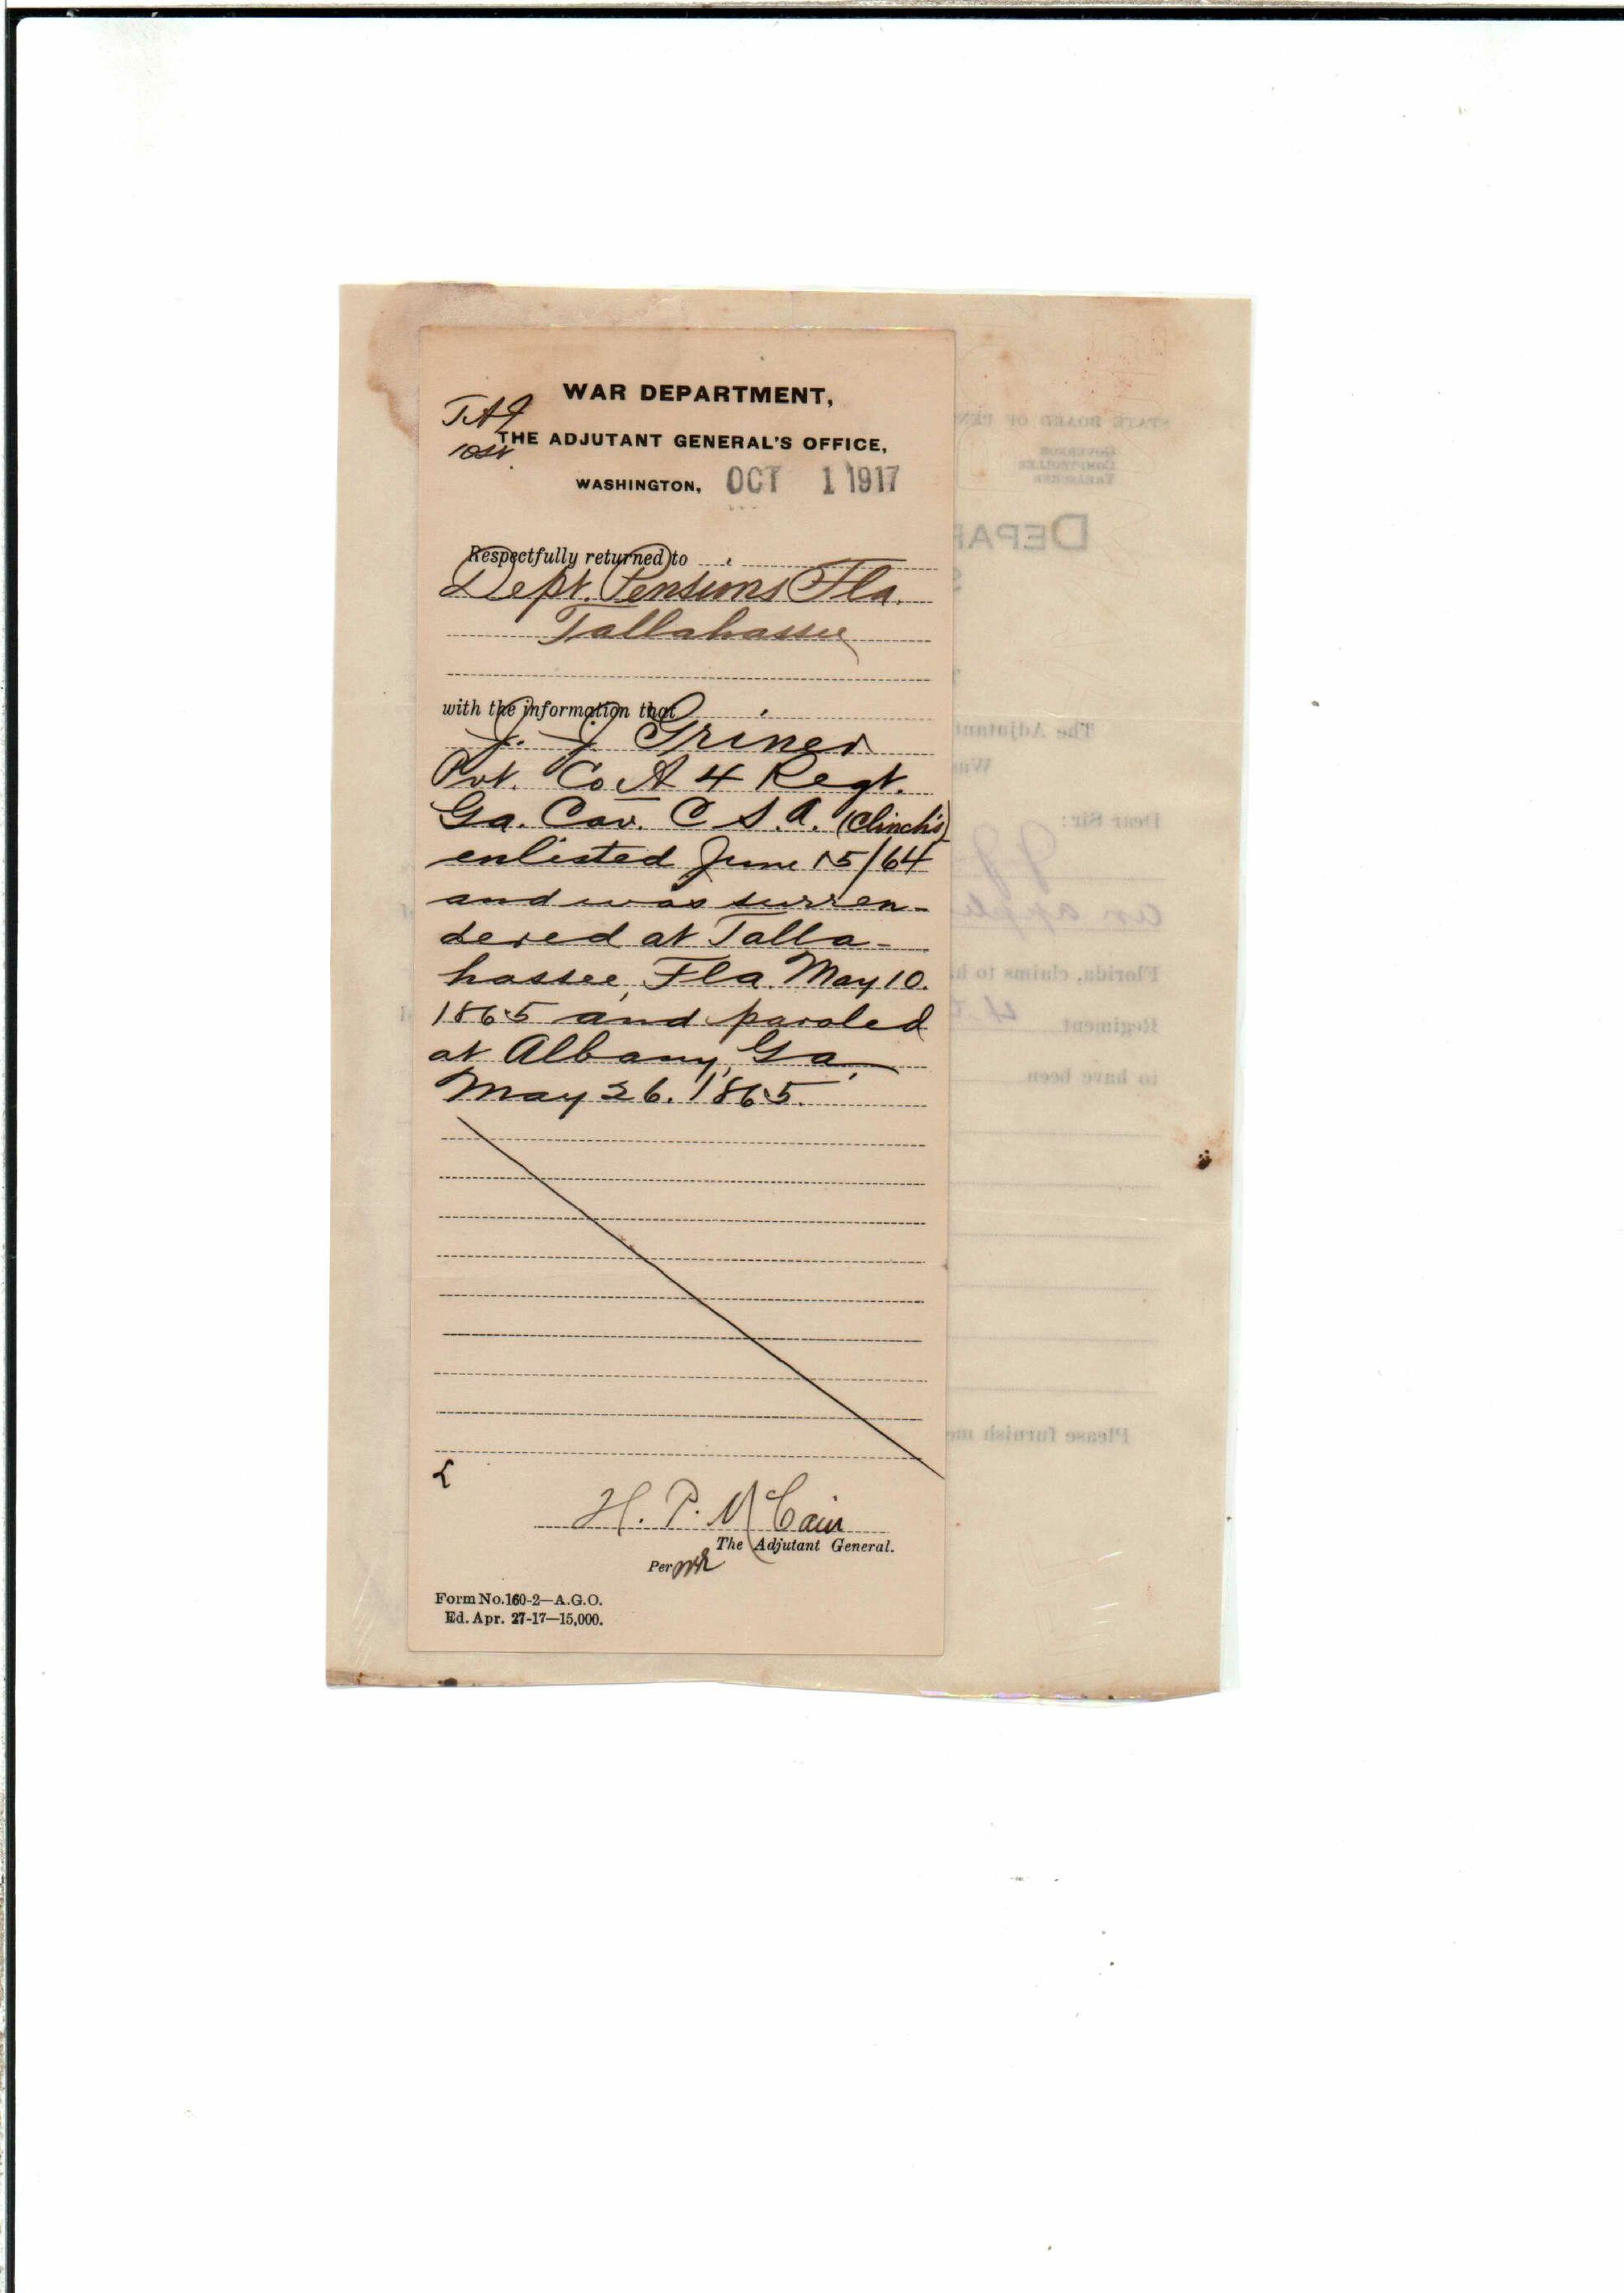 WAR DEPARTMENT,
THE ADJUTANT GENERAL'S OFFICE,
WASHINGTON, OCT 1 1917
Respectfully returned to
Dept. Pensions Fla.
Tallahassee
with the information that
J. J. Griner
Pvt. Co A 4 Regt.
Ga. Cav. C S. A. (Clinch's)
enlisted June 15/64
and was surren-
dered at Talla-
hassee, Fla. May 10.
1865 and paroled
at Albany, Ga.
May 26. 1865.
H. P. McCain
The Adjutant General.
Per
Form No. 160-2—A.G.O.
Ed. Apr. 27-17—15,000.
STATE BOARD OF PEN
GOVERNOR
COMPTROLLER
TREASURER
DEPAR
The Adjutant
Wa
Dear Sir:
an appli
Florida, claims to h
Regiment 4
to have been
Please furnish me